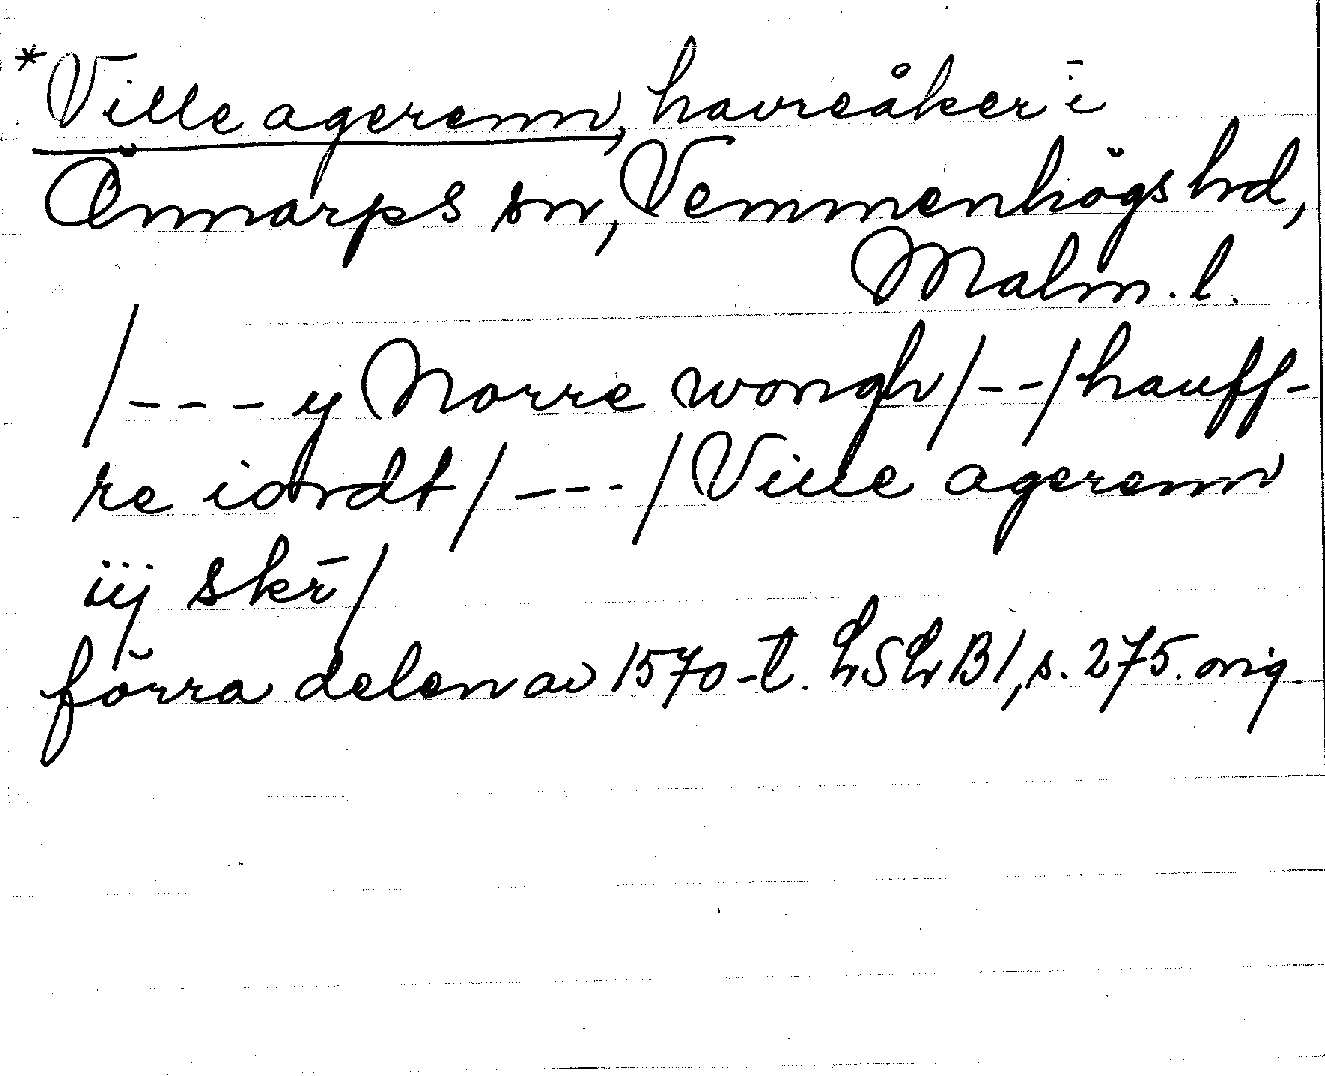 *Ville agerenn, havreåker i
Önnarps sn, Vemmenhögs hd,
Malm. l.
/--- y Norre wongh/--/hauff-
re iordt/---/Ville agerenn
iij skr̄/
förra delen av 1570-t. LSLB1, s. 275. orig.